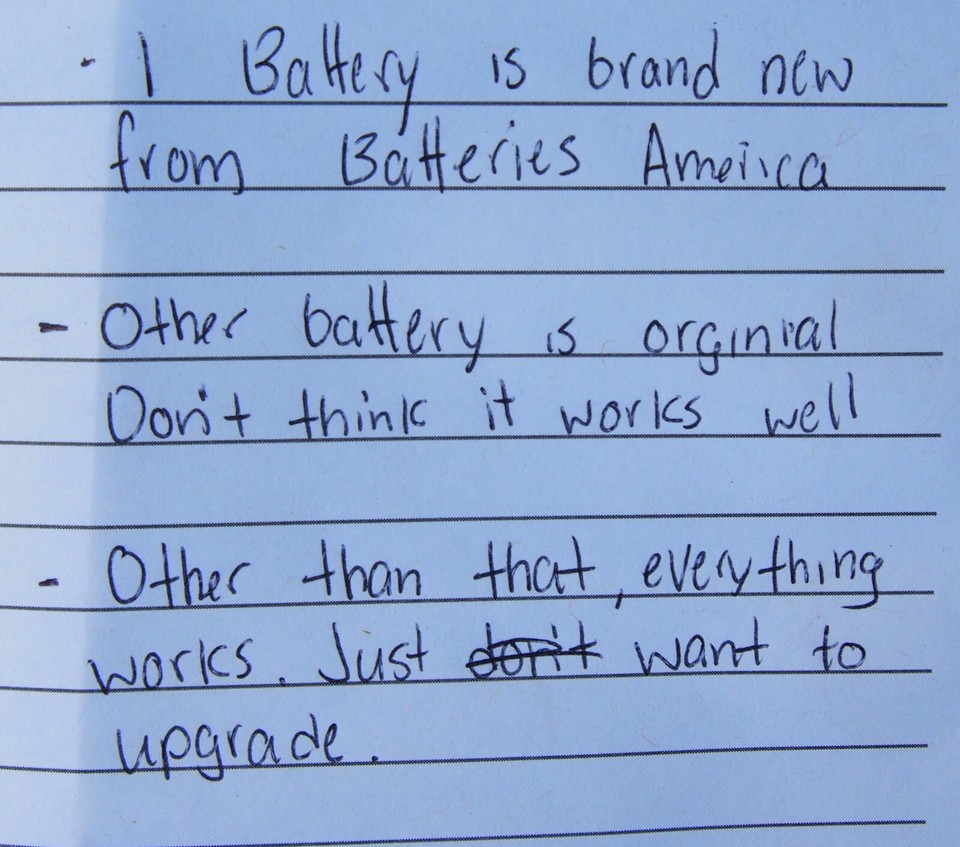 - 1 Battery is brand new
from Batteries America
- Other battery is orginial
Don't think it works well
- Other than that, everything
works. Just don't want to
upgrade.